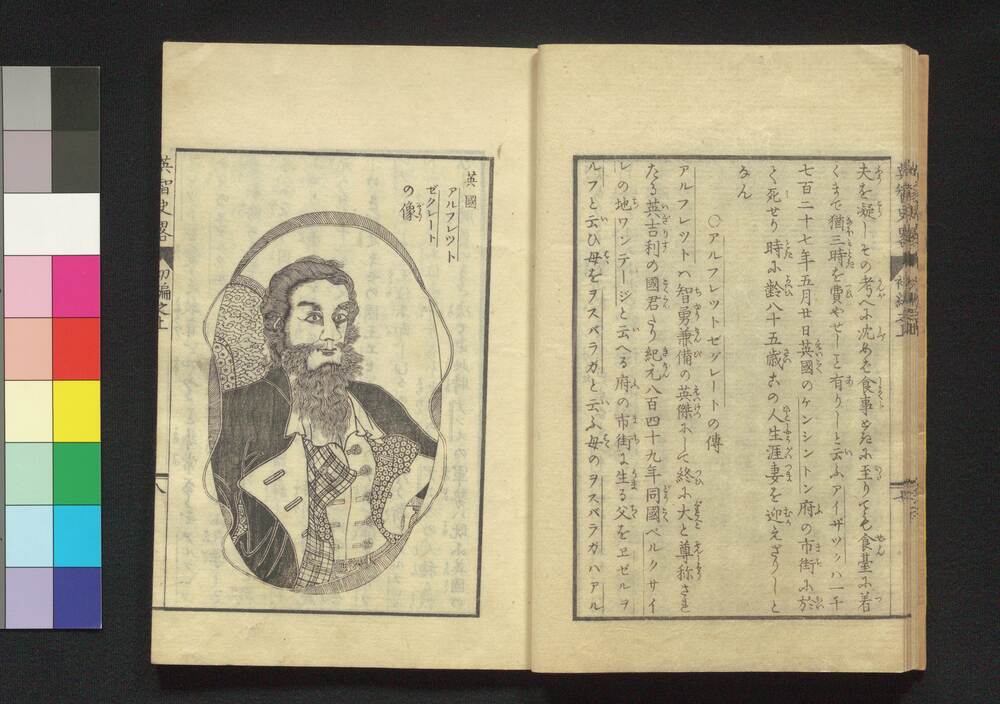 夫を凝しその考へに沈める食事どきに至りても食臺に着
くまで猶三時を費やせしこと有りしと云ふアイザツクハ一千
七百二十七年五月廿日英國のケンシントン府の市街に於
て死せり時に齡八十五歳此の人生涯妻を迎えざりしと
なん
○アルフレツトゼグレートの傳
アルフレツトハ智勇兼備の英傑にして終に大と尊称され
たる英吉利の國君なり紀元八百四十九年同國ベルクサイ
レの地ワンテージと云へる府の市街に生る父をエゼルヲ
ルフと云ひ母をヲスバラガと云ふ母のヲスバラガハアル
英國
アルフレツト
ゼグレート
の像
英智史畧
初編之上
八